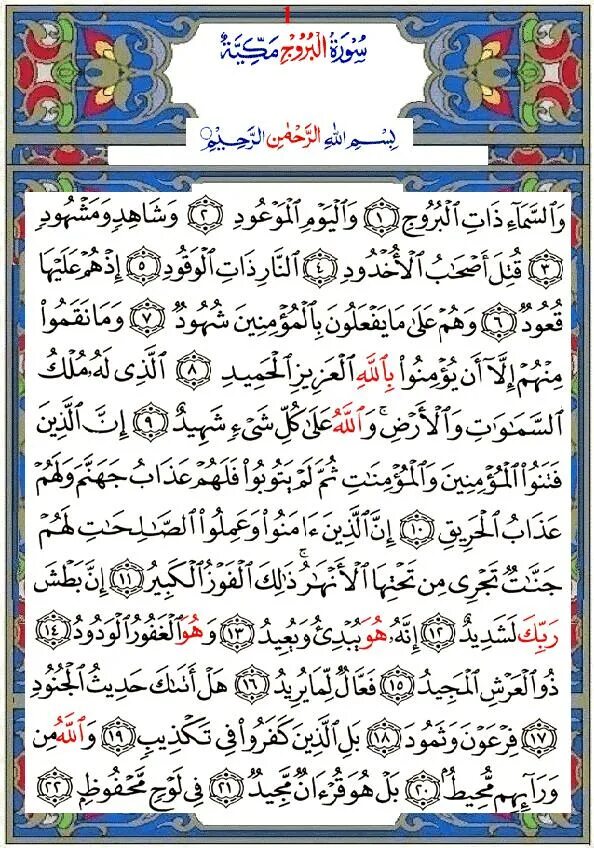 1
سُورَةُ الْبُرُوجِ مَكِّيَّةٌ
بِسْمِ اللهِ الرَّحْمٰنِ الرَّحِيْمِ
وَٱلسَّمَآءِ ذَاتِ ٱلْبُرُوجِ ١ وَٱلْيَوْمِ ٱلْمَوْعُودِ ٢ وَشَاهِدٍ وَمَشْهُودٍ
٣ قُتِلَ أَصْحَٰبُ ٱلْأُخْدُودِ ٤ ٱلنَّارِ ذَاتِ ٱلْوَقُودِ ٥ إِذْ هُمْ عَلَيْهَا
قُعُودٌ ٦ وَهُمْ عَلَىٰ مَا يَفْعَلُونَ بِٱلْمُؤْمِنِينَ شُهُودٌ ٧ وَمَا نَقَمُوا۟
مِنْهُمْ إِلَّآ أَن يُؤْمِنُوا۟ بِٱللَّهِ ٱلْعَزِيزِ ٱلْحَمِيدِ ٨ ٱلَّذِى لَهُۥ مُلْكُ
ٱلسَّمَٰوَٰتِ وَٱلْأَرْضِ ۚ وَٱللَّهُ عَلَىٰ كُلِّ شَىْءٍ شَهِيدٌ ٩ إِنَّ ٱلَّذِينَ
فَتَنُوا۟ ٱلْمُؤْمِنِينَ وَٱلْمُؤْمِنَٰتِ ثُمَّ لَمْ يَتُوبُوا۟ فَلَهُمْ عَذَابُ جَهَنَّمَ وَلَهُمْ
عَذَابُ ٱلْحَرِيقِ ١٠ إِنَّ ٱلَّذِينَ ءَامَنُوا۟ وَعَمِلُوا۟ ٱلصَّٰلِحَٰتِ لَهُمْ
جَنَّٰتٌ تَجْرِى مِن تَحْتِهَا ٱلْأَنْهَٰرُ ۚ ذَٰلِكَ ٱلْفَوْزُ ٱلْكَبِيرُ ١١ إِنَّ بَطْشَ
رَبِّكَ لَشَدِيدٌ ١٢ إِنَّهُۥ هُوَ يُبْدِئُ وَيُعِيدُ ١٣ وَهُوَ ٱلْغَفُورُ ٱلْوَدُودُ ١٤
ذُو ٱلْعَرْشِ ٱلْمَجِيدُ ١٥ فَعَّالٌ لِّمَا يُرِيدُ ١٦ هَلْ أَتَىٰكَ حَدِيثُ ٱلْجُنُودِ
١٧ فِرْعَوْنَ وَثَمُودَ ١٨ بَلِ ٱلَّذِينَ كَفَرُوا۟ فِى تَكْذِيبٍ ١٩ وَٱللَّهُ مِن
وَرَآئِهِم مُّحِيطٌۢ ٢٠ بَلْ هُوَ قُرْءَانٌ مَّجِيدٌ ٢١ فِى لَوْحٍ مَّحْفُوظٍۭ ٢٢